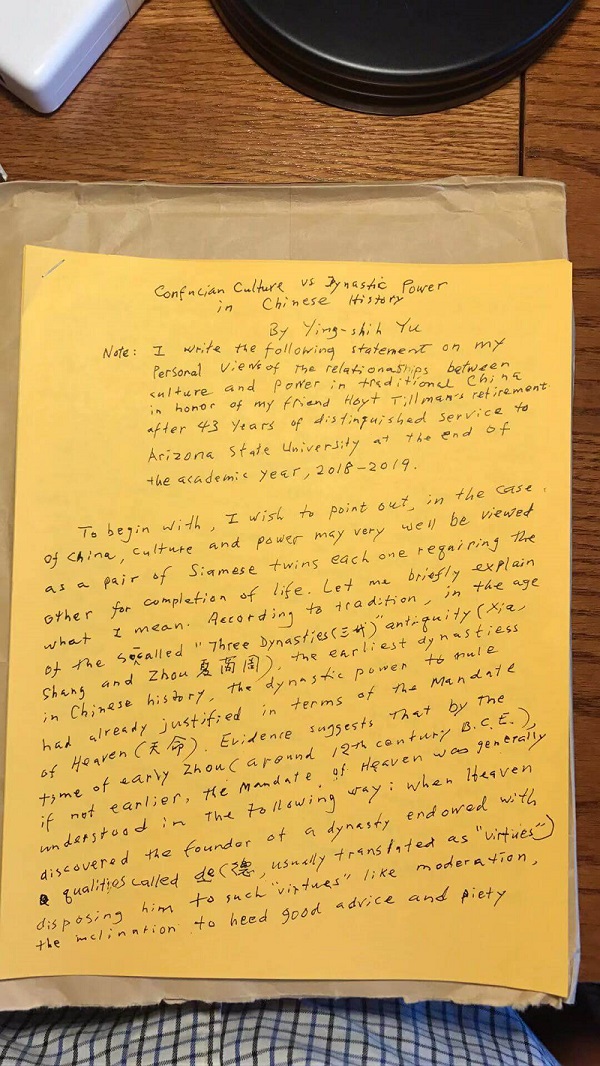 Confucian Culture vs Dynastic Power
in Chinese History
By Ying-shih Yu
Note: I write the following statement on my
personal views of the relationships between
culture and power in traditional China
in honor of my friend Hoyt Tillman's retirement
after 43 years of distinguished service to
Arizona State University at the end of
the academic year, 2018-2019.
To begin with, I wish to point out, in the case
of China, culture and power may very well be viewed
as a pair of Siamese twins each one requiring the
other for completion of life. Let me briefly explain
what I mean. According to tradition, in the age
of the so called "Three Dynasties (三代)" antiquity (Xia,
Shang and Zhou 夏商周), the earliest dynastiess
in Chinese history, the dynastic power to rule
had already justified in terms of the Mandate
of Heaven (天命). Evidence suggests that by the
time of early Zhou (around 12th century B.C.E.),
if not earlier, the Mandate of Heaven was generally
understood in the following way: when Heaven
discovered the founder of a dynasty endowed with
qualities called de (德, usually translated as "virtues")
disposing him to such "virtues" like moderation,
the inclination to heed good advice and piety